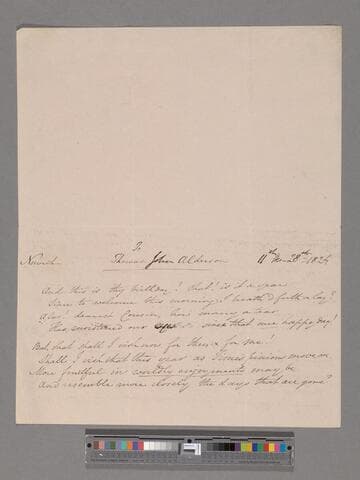 To
Norwich Thomas John Alderson 11th Mo 28th 1824
And this is thy birthday! but is it a year
Since to welcome this morning I breath'd forth a lay?
Alas! dearest Cousin, how many a tear
Has moistened our since that one happy day!
But what shall I wish now for thee & for me!
Shall I wish that this year as Time's pinions move on
More fruitful in worldly enjoyments may be
And resemble more closely the days that are gone?